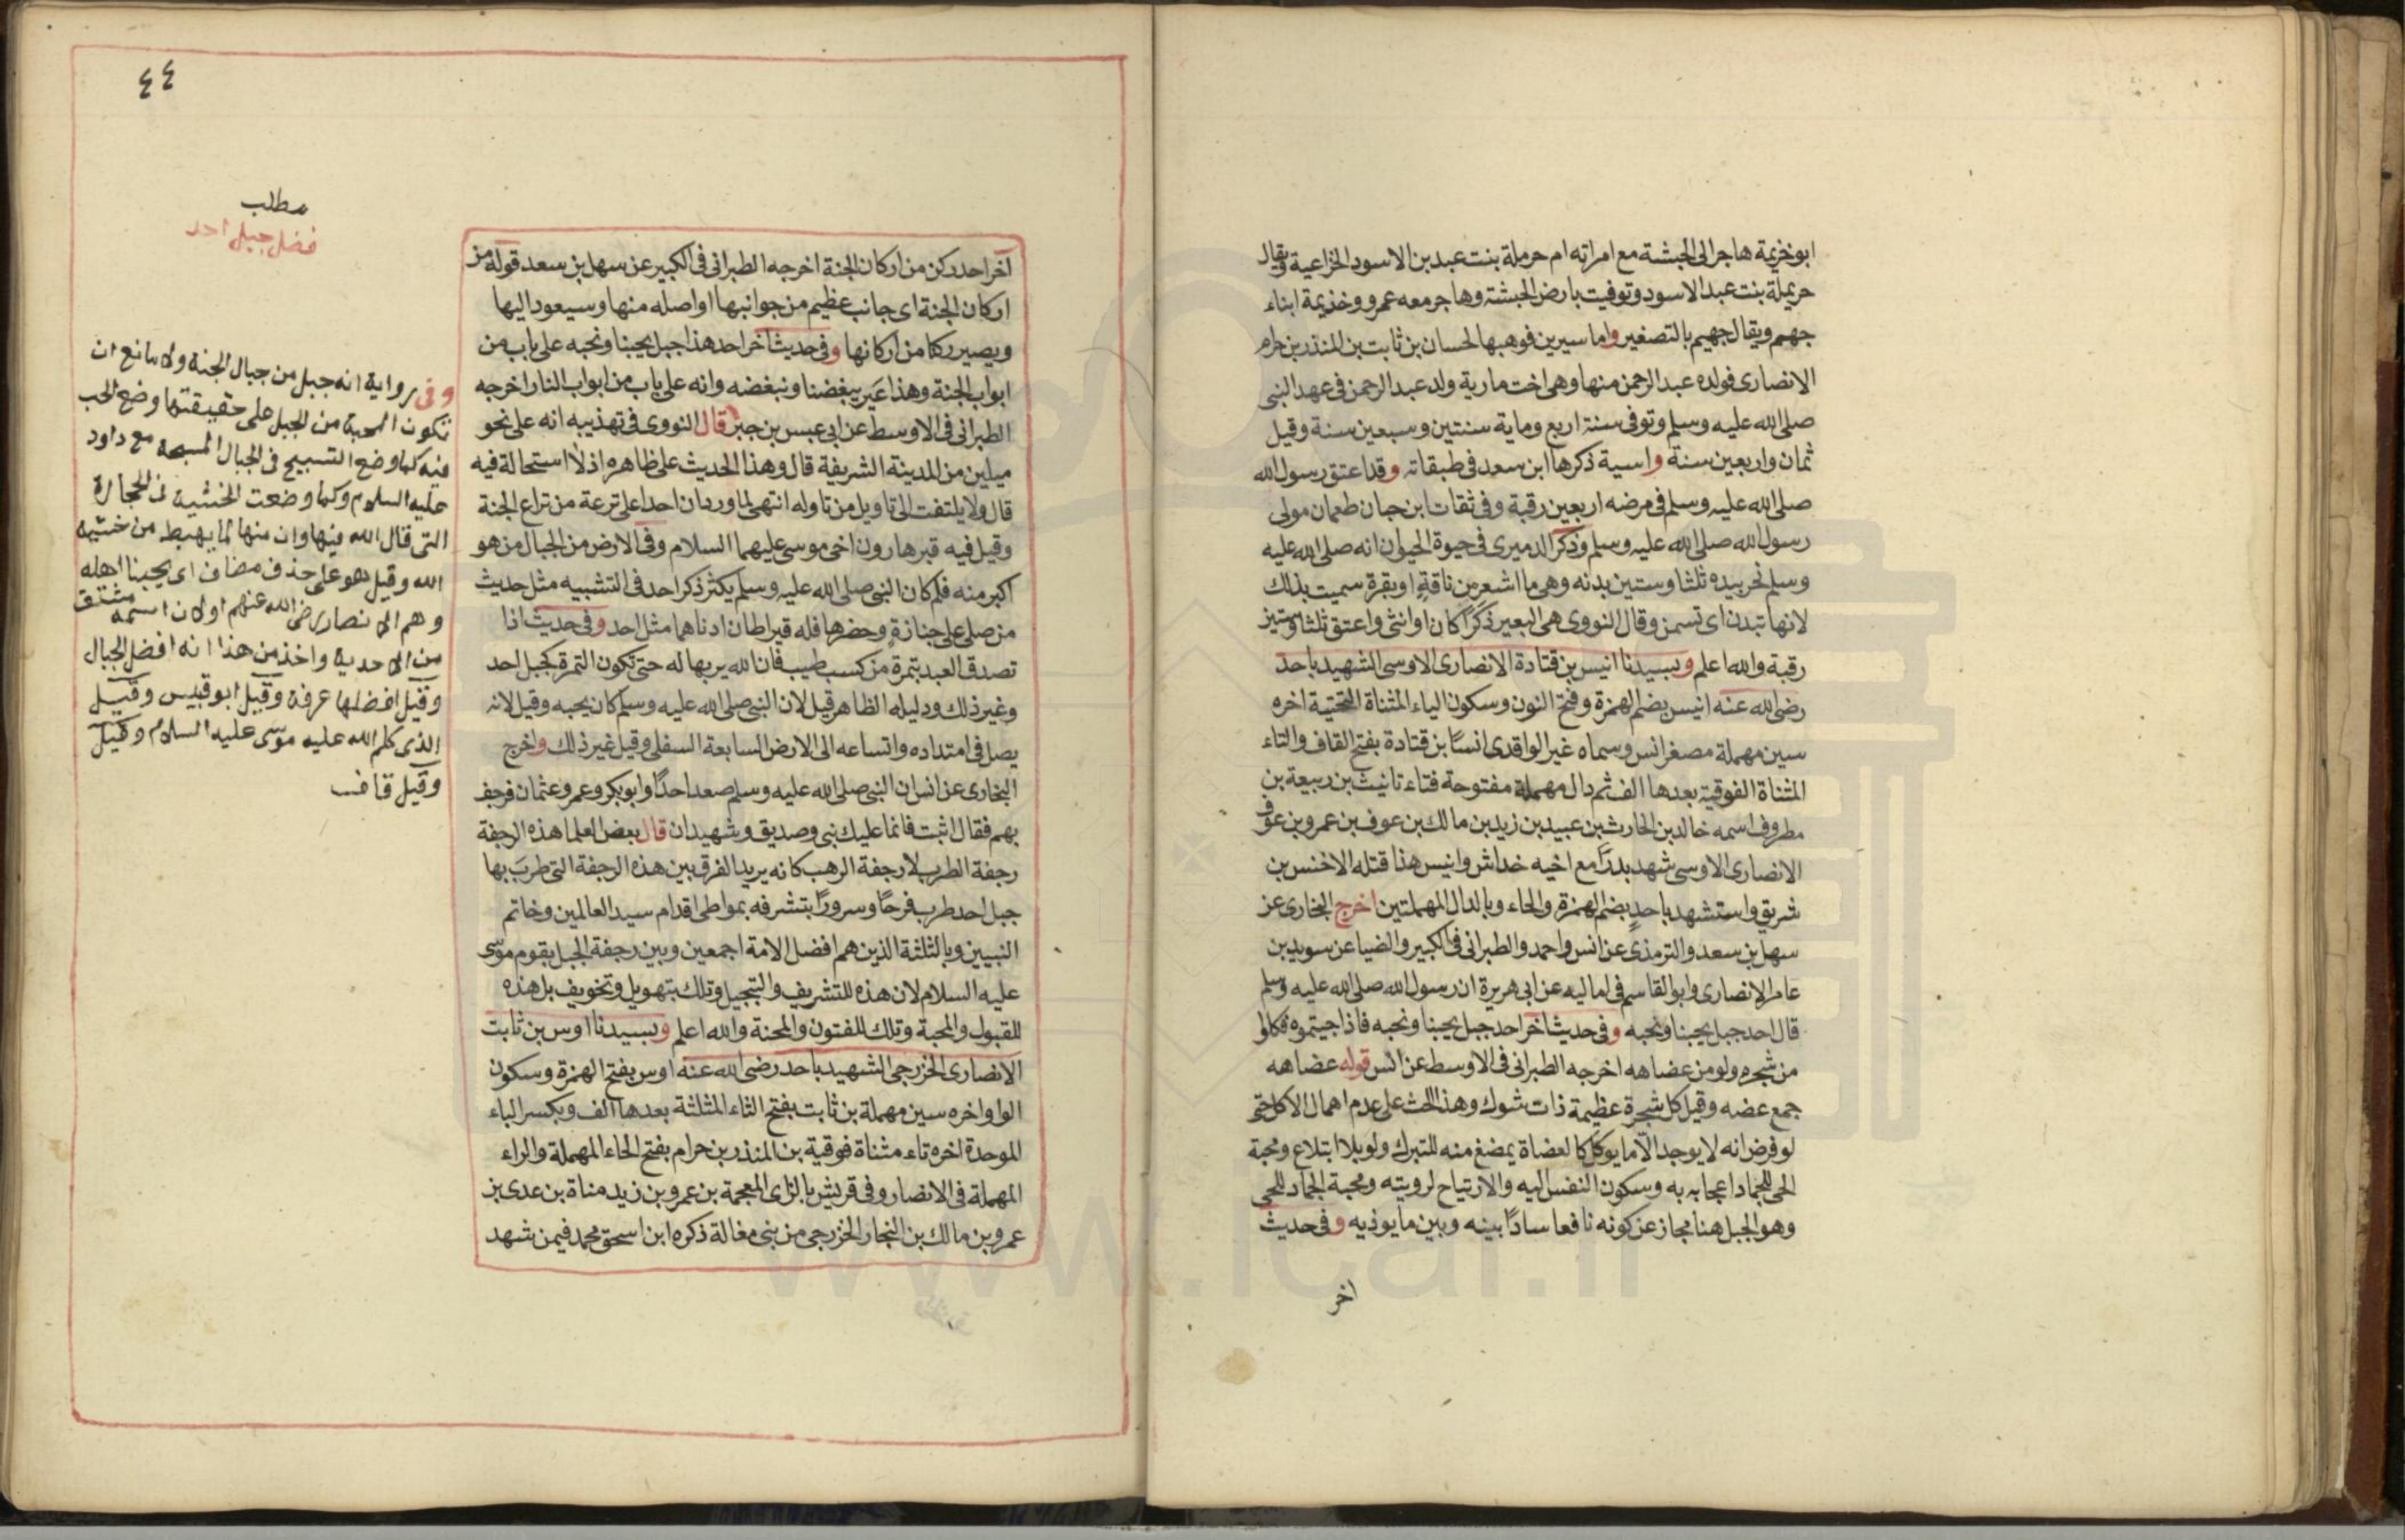 ابو خزيمة هاجر الى الحبشة مع امراته ام حرملة بنت عبد بن الاسود الخزاعية ويقال
حريملة بنت عبد الاسود وتوفيت بارض الحبشة وهاجر معه عمرو وخذيمة ابناء
جهم ويقال جهيم بالتصغير واما سيرين فوهبها لحسان بن ثابت بن المنذر بن حرام
الانصارى فولده عبد الرحمن منها وهى اخت مارية ولد عبد الرحمن فى عهد النبى
صلى الله عليه وسلم وتوفى سنة اربع وماية سنتين وسبعين سنة وقيل
ثمان واربعين سنة واسية ذكرها ابن سعد فى طبقاته وقد اعتق رسول الله
صلى الله عليه وسلم فى مرضه اربعين رقبة وفى ثقات ابن حبان طعمان مولى
رسول الله صلى الله عليه وسلم وذكر الدميرى فى حيوة الحيوان انه صلى الله عليه
وسلم نحر بيده ثلثا وستين بدنه وهى ما اشعر من ناقةٍ او بقرة سميت بذلك
لانها تبدن اى تسمن وقال النووى هى البعير ذكرًا كان او انثى واعتق ثلثا وستين
رقبة والله اعلم وبسيدنا انيس بن قتادة الانصارى الاوسى الشهيد باحد
رضى الله عنه انيس بضم الهمزة وفتح النون وسكون الياء المثناة التحتية اخره
سين مهملة مصغر انس وسماه غير الواقدى انسًا بن قتادة بفتح القاف والتاء
المثناة الفوقية بعدها الف ثم دال مهملة مفتوحة فتاء تانيث بن ربيعة بن
مطروف اسمه خالد بن الحارث بن عبيد بن زيد بن مالك بن عوف بن عمرو بن عوف
الانصارى الاوسى شهد بدرًا مع اخيه خداش وانيس هذا قتله الاخنس بن
شريق واستشهد باحدٍ بضم الهمزة والحاء وبالدال المهملتين اخرج البخارى عن
سهل بن سعد والترمذى عن انس واحمد والطبرانى فى الكبير والضيا عن سويد بن
عامر الانصارى وابو القاسم فى اماليه عن ابى هريرة ان رسول الله صلى الله عليه وسلم
قال احد جبل يحبنا ونحبه وفى حديث اخر احد جبل يحبنا ونحبه فاذا جيتموه فكلوا
من شجره ولو من عضاهه اخرجه الطبرانى فى الاوسط عن انس قوله عضاهه
جمع عضه وقيل كل شجرة عظيمة ذات شوك وهذا الحث على عدم اهمال الاكل حتى
لو فرض انه لا يوجد الّا ما يوكل كالعضاة يمضغ منه للتبرك ولو بلا ابتلاع ومحبة
الحى للجماد اعجابه به وسكون النفس اليه والارتياح لرويته ومحبة الجماد للحى
وهو الجبل هنا مجاز عن كونه نافعا سادًا بينه وبين ما يوذيه وفى حديث
اخر
٤٤
مطلب
فضل جبل احد
آخر احد ركن من اركان الجنة اخرجه الطبرانى فى الكبير عن سهل بن سعد قوله من
اركان الجنة اى جانب عظيم من جوانبها او اصله منها وسيعود اليها
ويصير ركنا من اركانها وفى حديث اخر احد هذا جبل يحبنا ونحبه على باب من
ابواب الجنة وهذا عَير يبغضنا ونبغضه وانه على باب من ابواب النار اخرجه
الطبرانى فى الاوسط عن ابى عبس بن جبر قال النووى فى تهذيبه انه على نحو
ميلين من المدينة الشريفة قال وهذا الحديث على ظاهره اذ لا استحالة فيه
قال ولا يلتفت الى تاويل من تاوله انتهى لما ورد ان احدا على ترعة من تراع الجنة
وقيل فيه قبر هارون اخى موسى عليهما السلام وفى الارض من الجبال من هو
اكبر منه فلم كان النبى صلى الله عليه وسلم يكثر ذكر احد فى التشبيه مثل حديث
من صلى على جنازةٍ وحضرها فله قيراطان ادناهما مثل احد وفى حديث اذا
تصدق العبد بتمرة من كسب طيب فان الله يربها له حتى تكون التمرة كجبل احد
وغير ذلك ودليله الظاهر قيل لان النبى صلى الله عليه وسلم كان يحبه وقيل لانه
يصل فى امتداده واتساعه الى الارض السابعة السفلى وقيل غير ذلك واخرج
البخارى عن انس ان النبى صلى الله عليه وسلم صعد احدًا وابو بكر وعمر وعثمان فرجف
بهم فقال اثبت فانما عليك نبى وصديق وشهيدان قال بعض العلما هذه الرجفة
رجفة الطرب لا رجفة الرهب كانه يريد الفرق بين هذه الرجفة التى طرب بها
جبل احد طرب فرحًا وسرورًا بتشرفه بمواطى اقدام سيد العالمين وخاتم
النبيين وبالثلثة الذين هم افضل الامة اجمعين وبين رجفة الجبل بقوم موسى
عليه السلام لان هذه للتشريف والتبجيل وتلك بتهويل وتخويف بل هذه
للقبول والمحبة وتلك للفتون والمحنة والله اعلم وبسيدنا اوس بن ثابت
الانصارى الخزرجى الشهيد باحد رضى الله عنه اوس بفتح الهمزة وسكون
الواو اخره سين مهملة بن ثابت بفتح الثاء المثلثة بعدها الف وبكسر الباء
الموحدة اخره تاء مثناة فوقية بن المنذر بن حرام بفتح الحاء المهملة والراء
المهملة فى الانصار وفى قريش بالزاى المعجمة بن عمرو بن زيد مناة بن عدى بن
عمرو بن مالك بن النجار الخزرجى من بنى مغالة ذكره ابن اسحق محمد فيمن شهد
وفى رواية انه جبل من جبال الجنة ولا مانع ان
تكون المحبة من الجبل على حقيقتها وضع الحب
فيه كما وضع التسبيح فى الجبال المسبحه مع داود
عليه السلام وكما وضعت الخشية فى الحجارة
التى قال الله فيها وان منها لما يهبط من خشية
الله وقيل هو على حذف مضاف اى يحبنا اهله
وهم الانصار رضى الله عنهم او لان اسمه مشتق
من الاحدية واخذ من هذا انه افضل الجبال
وقيل افضلها عرفة وقيل ابو قبيس وقيل
الذى كلم الله عليه موسى عليه السلام وقيل
وقيل قاف
www.ical.ir